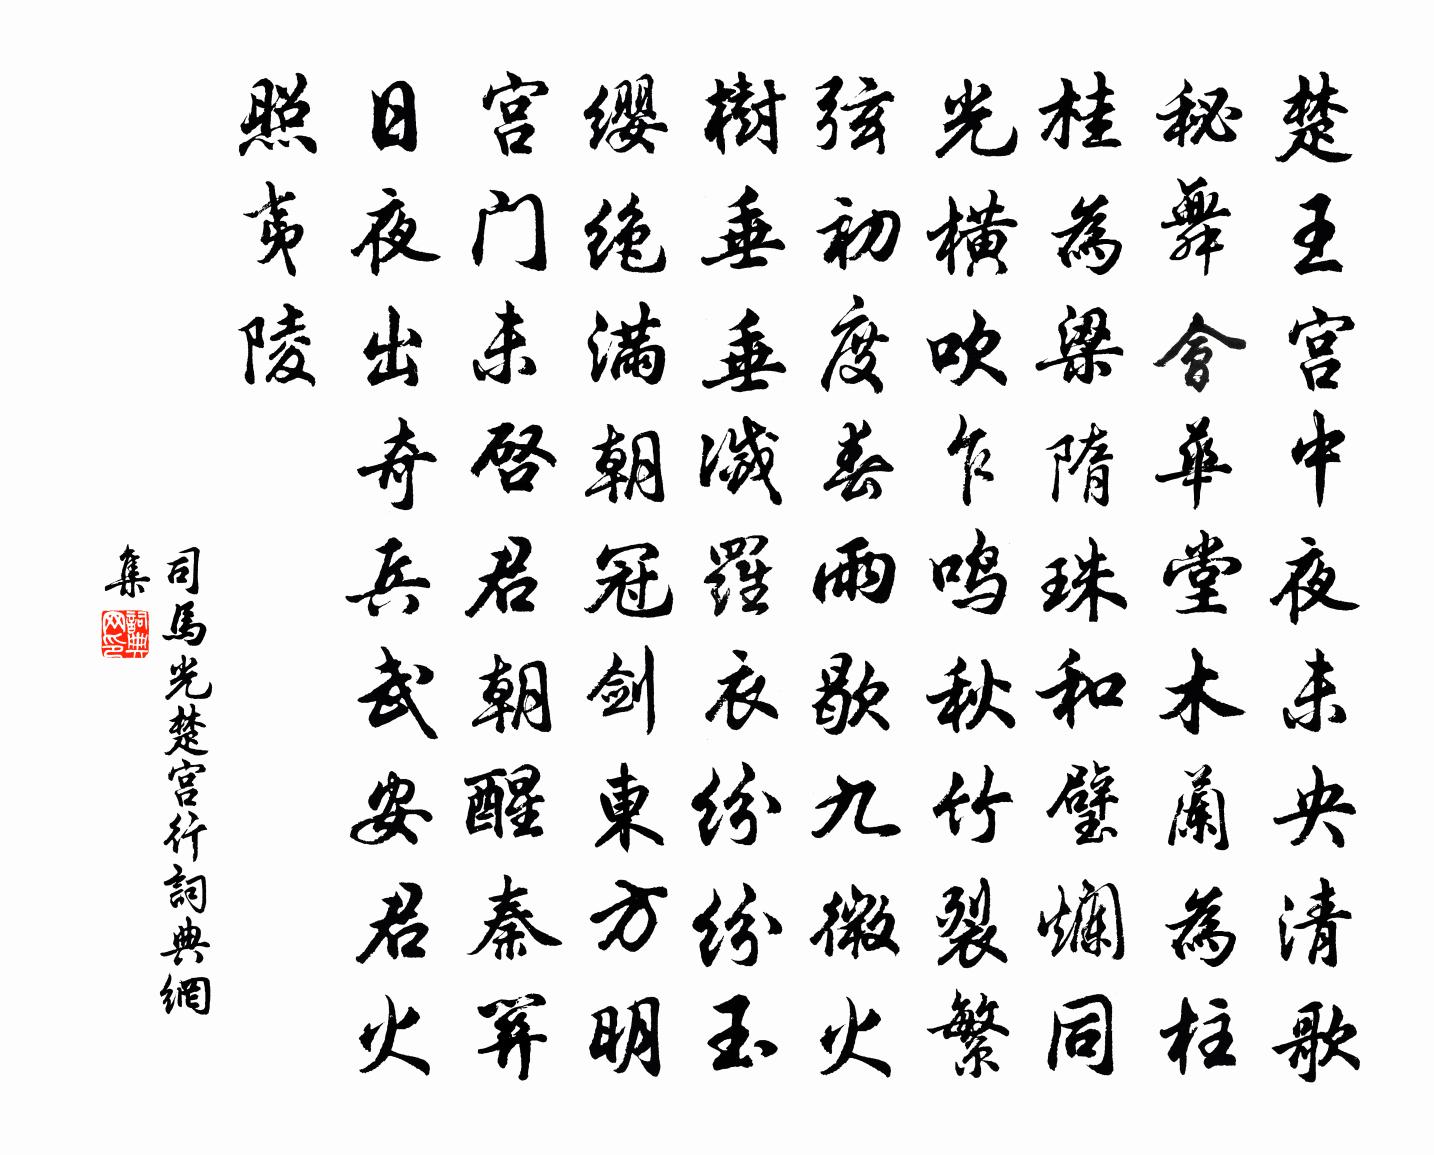 楚王宫中夜未央清歌
秘舞會華堂木蘭為柱
桂為梁隋珠和璧爛同
光橫吹乍鳴秋竹裂繁
弦初度春雨歇九微火
樹垂垂滅羅衣紛紛玉
纓絶满朝冠劍東方明
宫门未啓君朝醒秦關
日夜出奇兵武安君火
照夷陵
司馬光楚宫行詞典網
集
詞典
网印